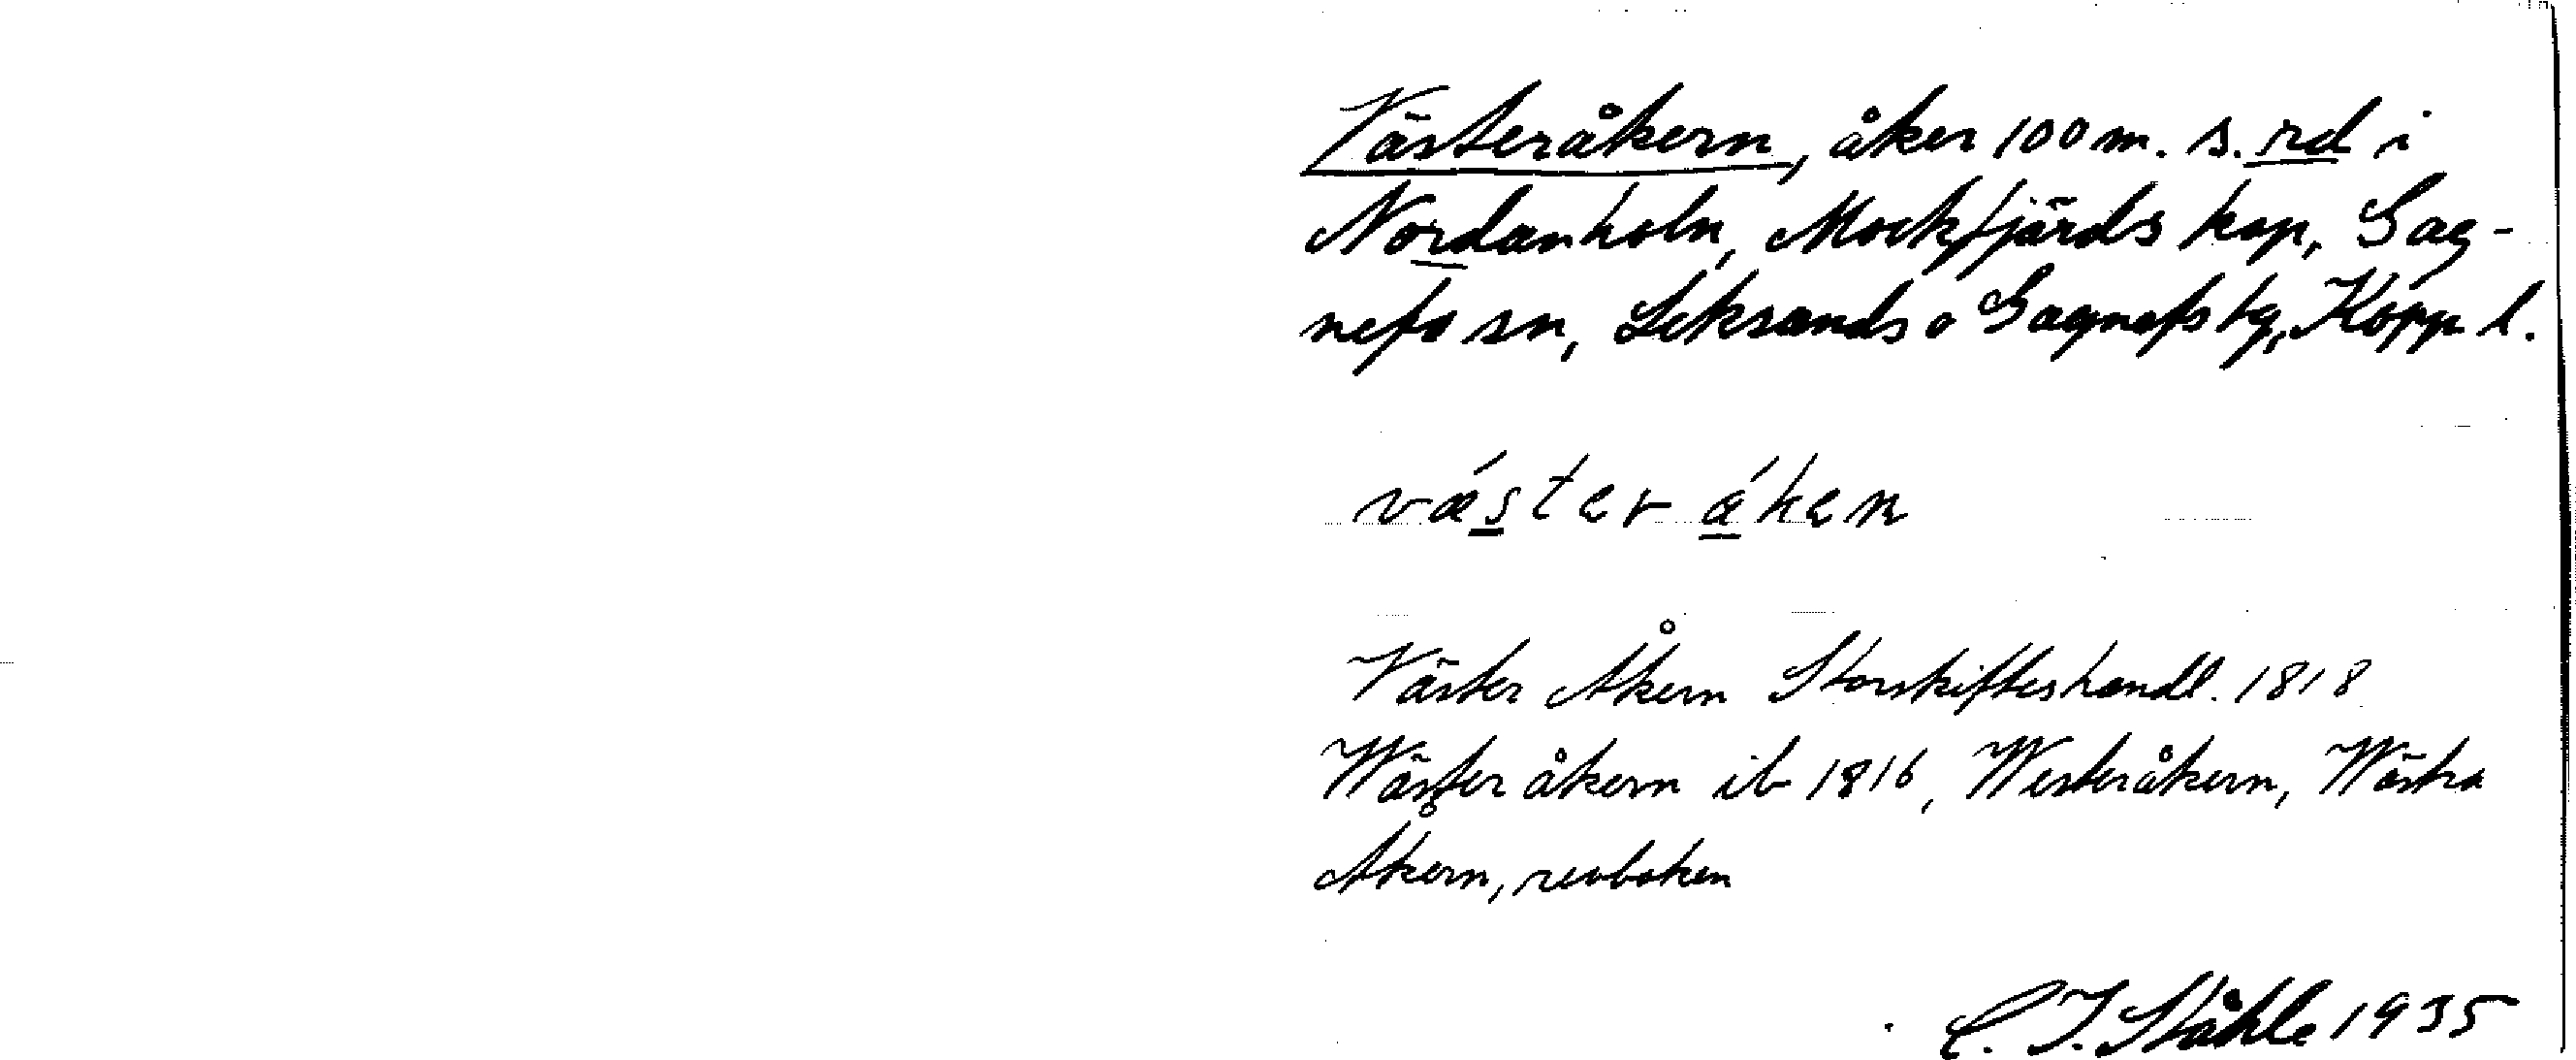 Västeråkern, åker 100 m. s. rd i
Nordanholn, Mockfjärds kap, Gag-
nefs sn, Leksands o Gagnefs tg, Kopp l.
väster åken
Väster Åkern Storskifteshandl. 1818
Wäster åkern ib 1816, Westeråkern, Wästra
Åkern, revboken
C. I. Ståhle 1935